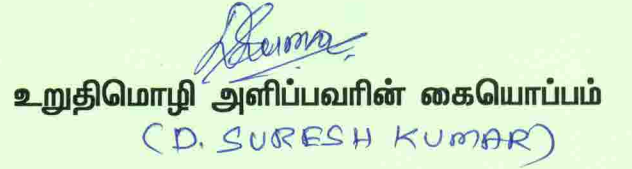 உறுதிமொழி அளிப்பவரின் கையொப்பம்
(D. SURESH KUMAR)